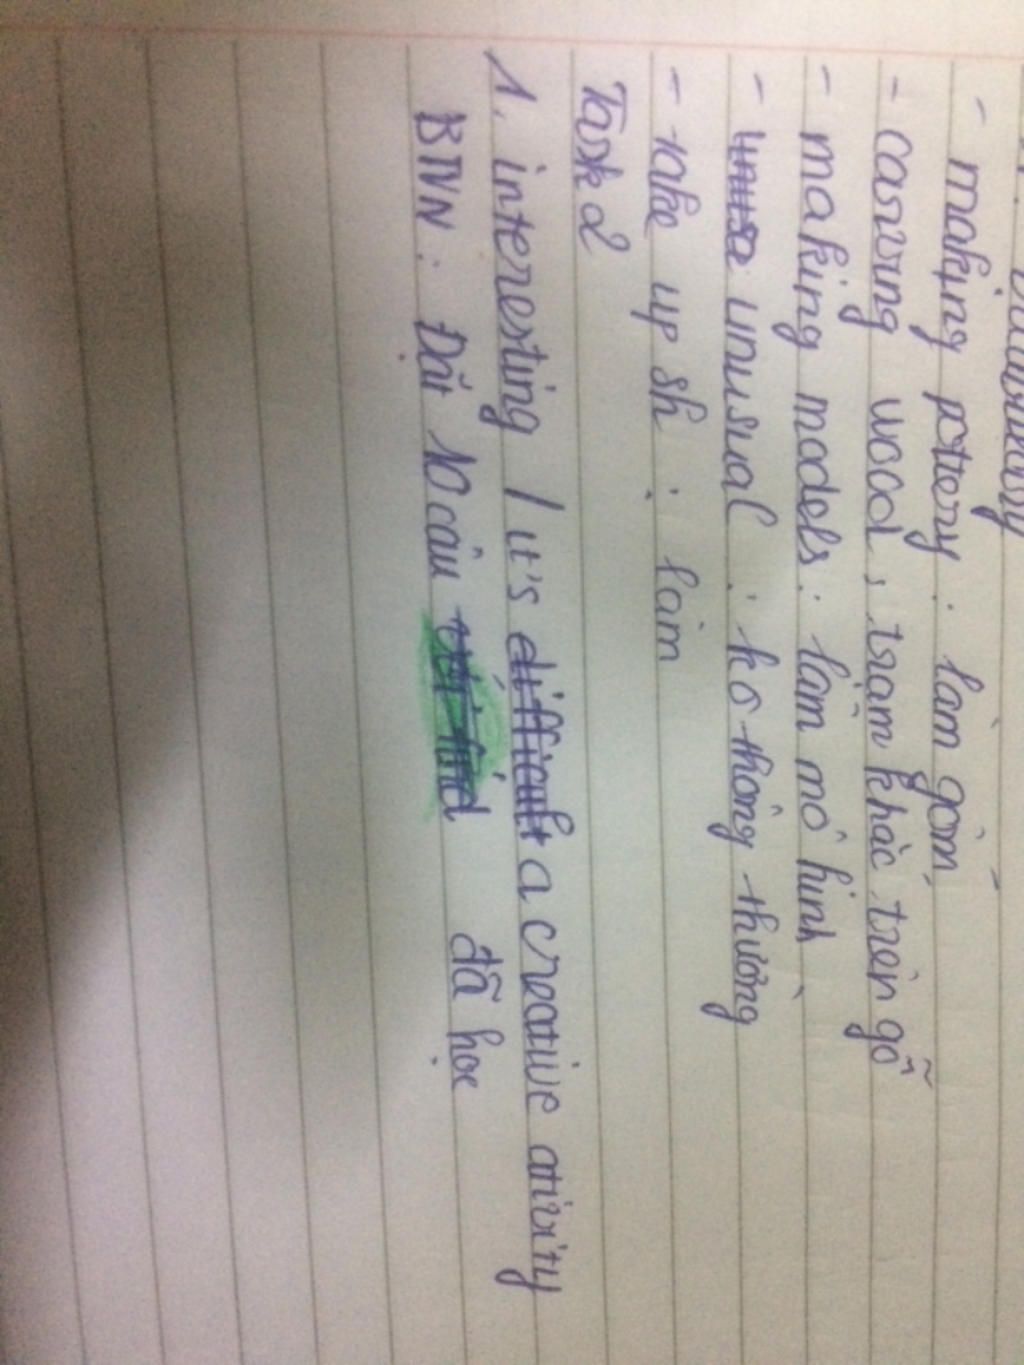 - making pottery : làm gốm
- carving wood : trạm khắc trên gỗ
- making models : làm mô hình
- unusual : ko thông thường
- take up sth : làm
Task 2
1. interesting / it's difficult a creative ativity
BTVN : Đặt 10 câu với find đã học